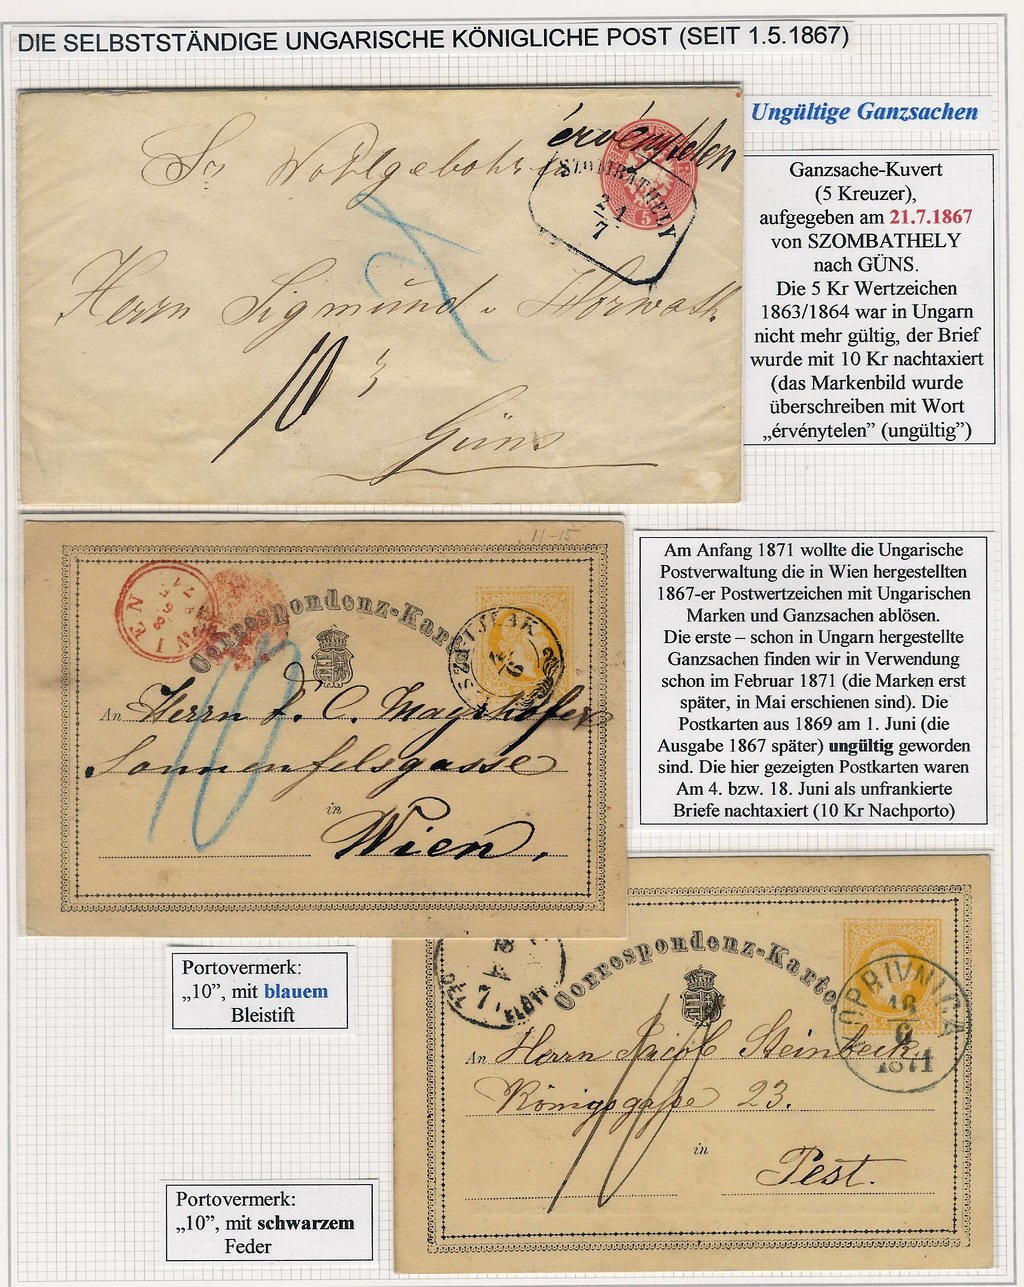 DIE SELBSTSTÄNDIGE UNGARISCHE KÖNIGLICHE POST (SEIT 1.5.1867)
Ungültige Ganzsachen
érvénytelen
Sr Wohlgebohren
SZOMBATHELY
21
7
5
Herrn Sigmund v Horwath
10
Güns
Ganzsache-Kuvert
(5 Kreuzer),
aufgegeben am 21.7.1867
von SZOMBATHELY
nach GÜNS.
Die 5 Kr Wertzeichen
1863/1864 war in Ungarn
nicht mehr gültig, der Brief
wurde mit 10 Kr nachtaxiert
(das Markenbild wurde
überschreiben mit Wort
„érvénytelen” (ungültig”)
11-15
Correspondenz-Karte
WIEN
10
An Herrn F. C. Mayrhofer
Sonnenfelsgasse
in
Wien.
Am Anfang 1871 wollte die Ungarische
Postverwaltung die in Wien hergestellten
1867-er Postwertzeichen mit Ungarischen
Marken und Ganzsachen ablösen.
Die erste – schon in Ungarn hergestellte
Ganzsachen finden wir in Verwendung
schon im Februar 1871 (die Marken erst
später, in Mai erschienen sind). Die
Postkarten aus 1869 am 1. Juni (die
Ausgabe 1867 später) ungültig geworden
sind. Die hier gezeigten Postkarten waren
Am 4. bzw. 18. Juni als unfrankierte
Briefe nachtaxiert (10 Kr Nachporto)
Portovermerk:
„10”, mit blauem
Bleistift
Correspondenz-Karte
DÉLELŐTT
7
KOPRIVNICA
18
6
1871
10
An Herrn Jacob Steinbeck
Königsgasse 23.
in
Pest.
Portovermerk:
„10”, mit schwarzem
Feder